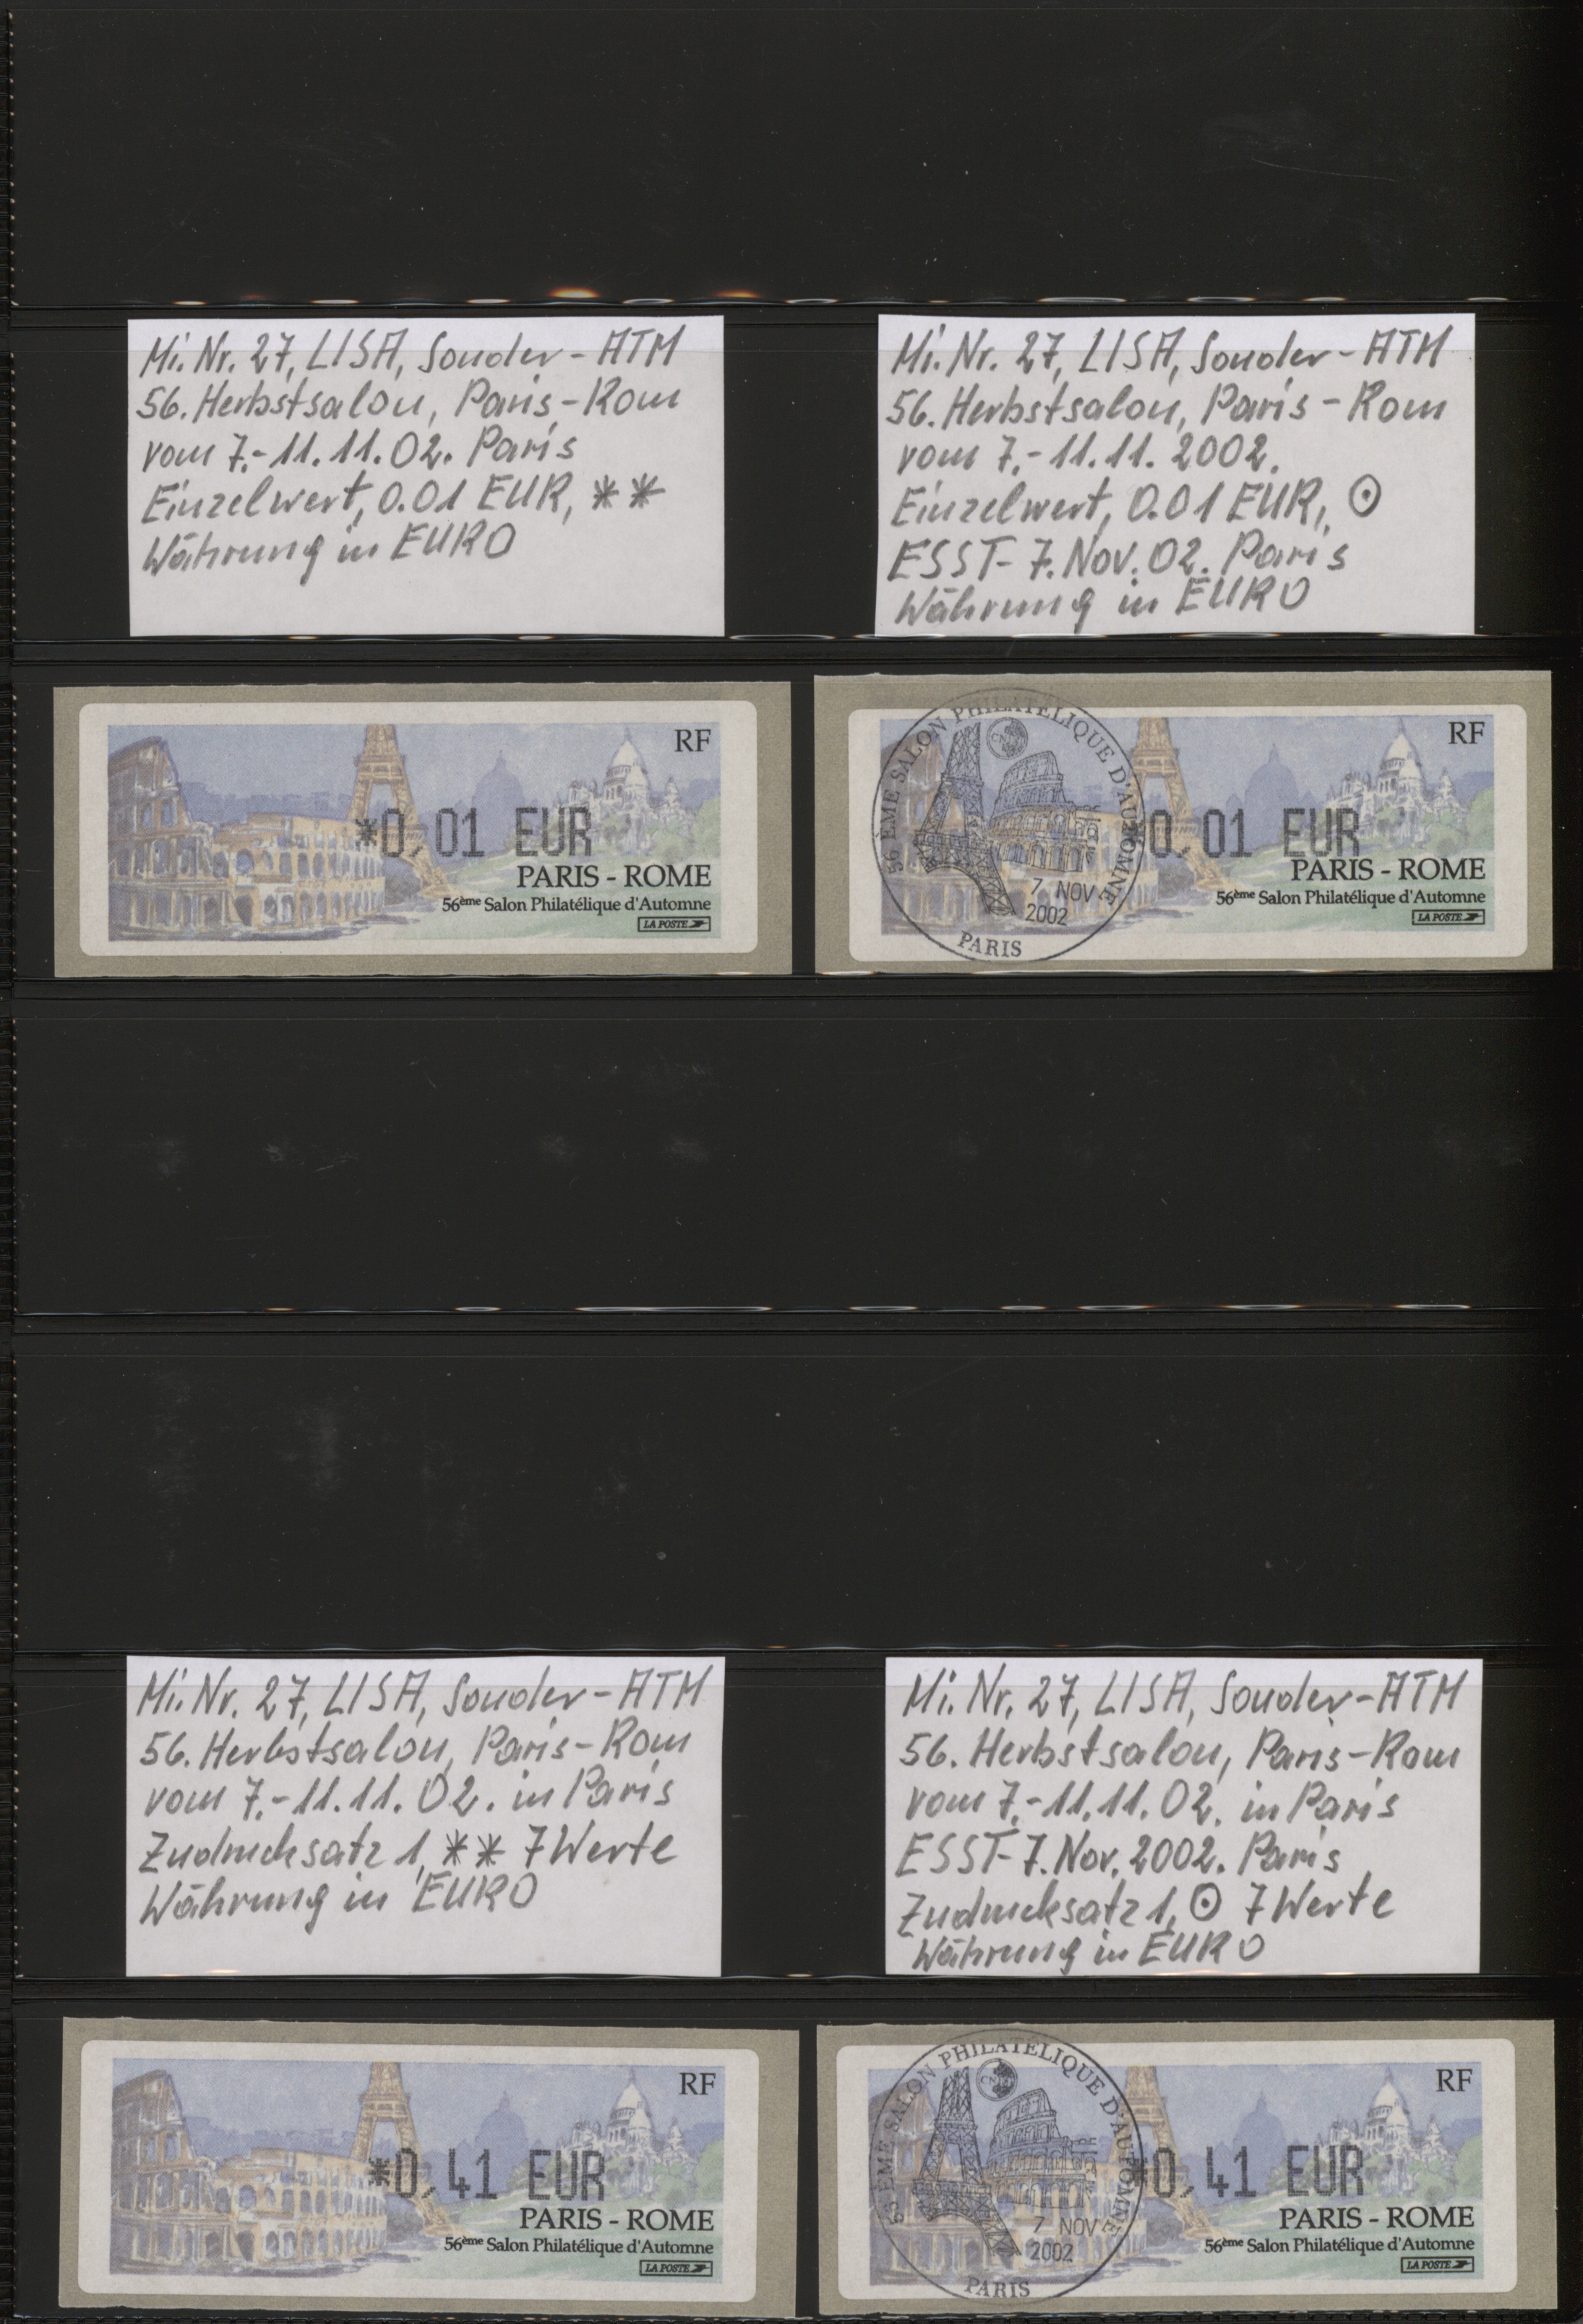 Mi. Nr. 27, LISA, Sonder-ATM
56. Herbstsalon, Paris-Rom
vom 7.-11.11.02. Paris
Einzelwert, 0.01 EUR, **
Währung in EURO
Mi. Nr. 27, LISA, Sonder-ATM
56. Herbstsalon, Paris-Rom
vom 7.-11.11.2002.
Einzelwert, 0.01 EUR, ⊙
ESST- 7. Nov. 02. Paris
Währung in EURO
RF
*0,01 EUR
PARIS - ROME
56ème Salon Philatélique d'Automne
LA POSTE
56 ÈME SALON PHILATÉLIQUE D'AUTOMNE
7 NOV
2002
PARIS
RF
*0,01 EUR
PARIS - ROME
56ème Salon Philatélique d'Automne
LA POSTE
Mi. Nr. 27, LISA, Sonder-ATM
56. Herbstsalon, Paris-Rom
vom 7.-11.11.02. in Paris
Zudrucksatz 1, ** 7 Werte
Währung in EURO
Mi. Nr. 27, LISA, Sonder-ATM
56. Herbstsalon, Paris-Rom
vom 7.-11.11.02. in Paris
ESST- 7. Nov. 2002. Paris
Zudrucksatz 1, ⊙ 7 Werte
Währung in EURO
RF
*0,41 EUR
PARIS - ROME
56ème Salon Philatélique d'Automne
LA POSTE
ÈME SALON PHILATÉLIQUE D'AUTOMNE
7 NOV
2002
PARIS
RF
*0,41 EUR
PARIS - ROME
56ème Salon Philatélique d'Automne
LA POSTE